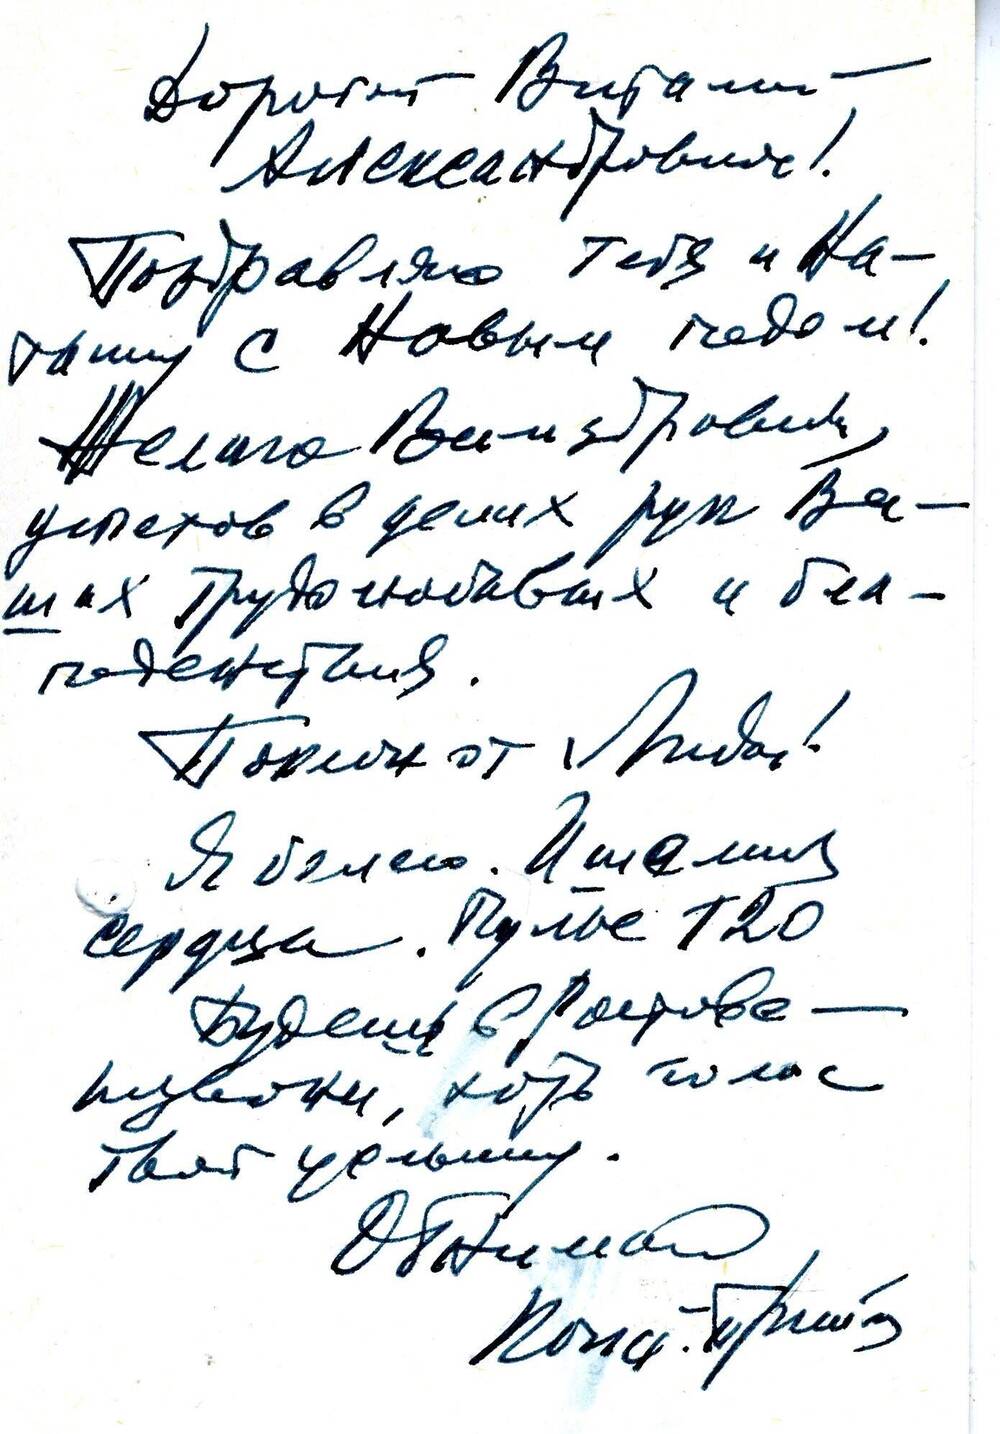 Дорогой Виталий
Александрович!
Поздравляю тебя и На-
ташу с Новым годом!
Желаю Вам здоровья,
успехов в делах рук Ва-
ших трудолюбивых и бла-
годенствия.
Поклон от Лиды!
Я болею. Ишемия
сердца. Пульс 120
Будешь в Ростове —
позвони, хоть голос
твой услышу.
Обнимаю